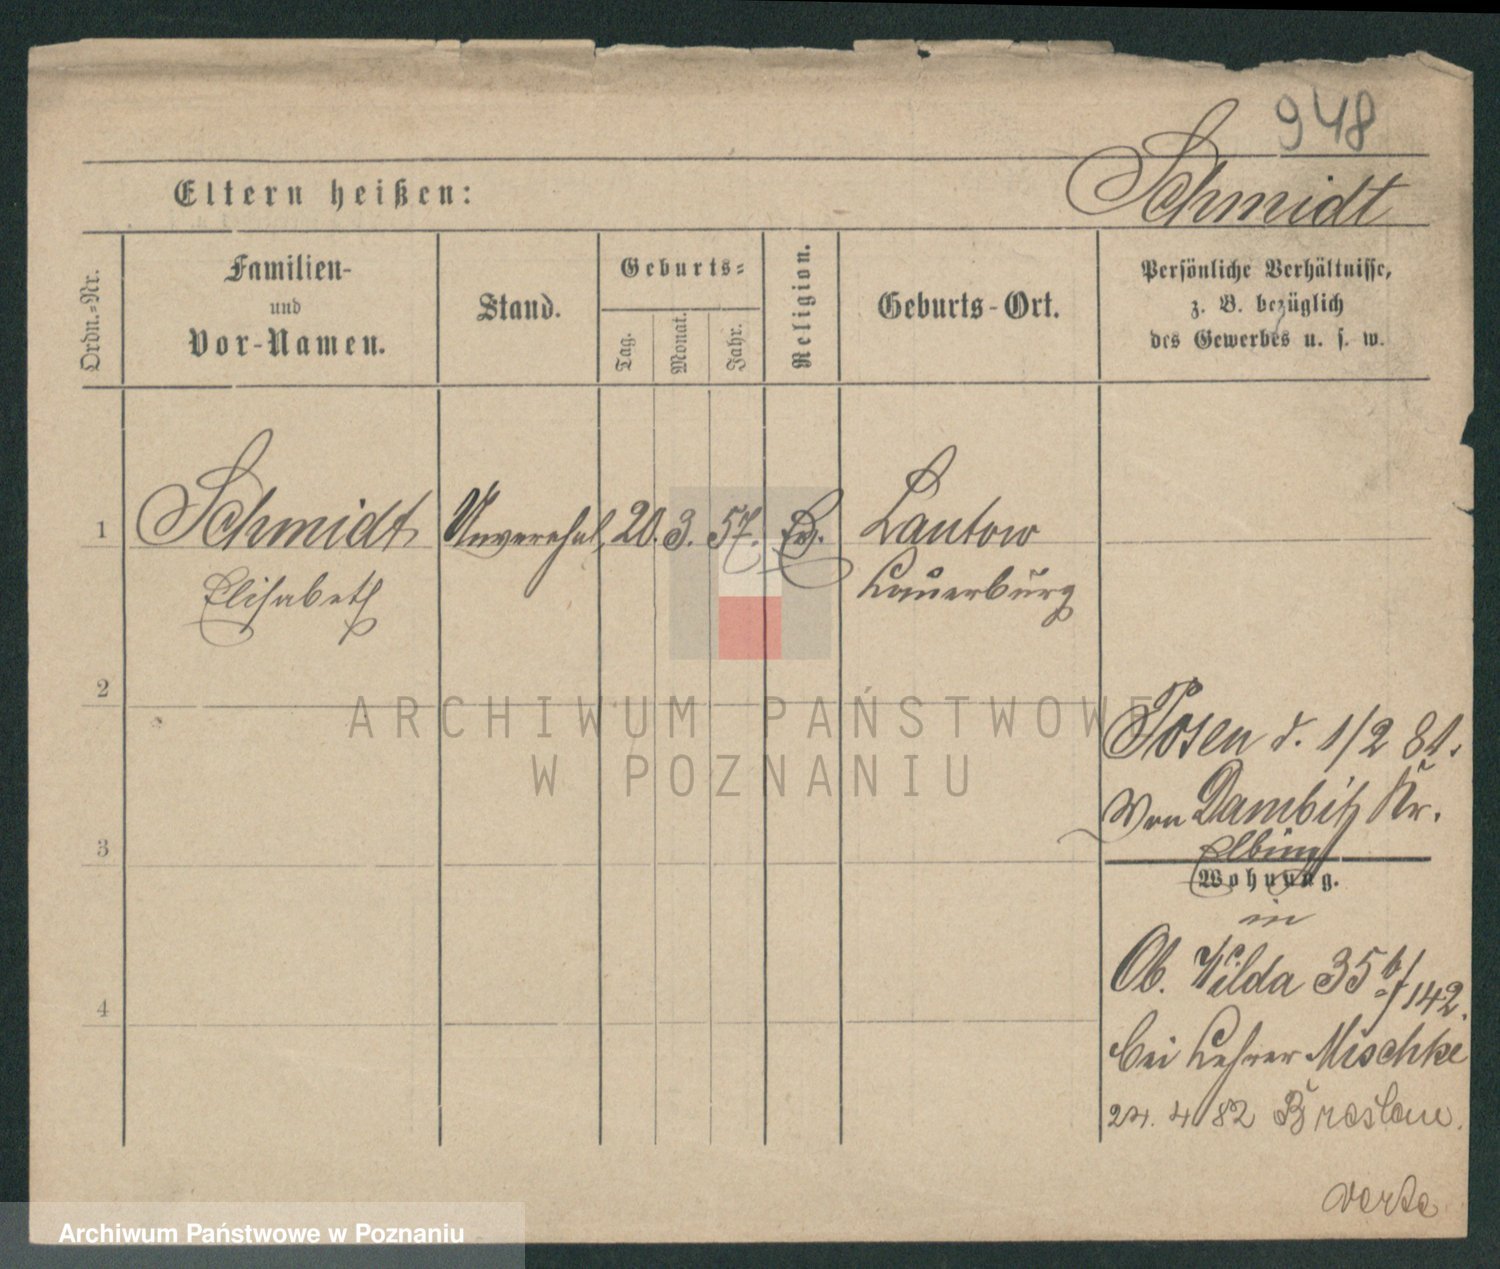 948
Schmidt
Eltern heißen:
Ordn.-Nr.
Familien-
und
Vor-Namen.
Stand.
Geburts-
Tag.
Monat.
Jahr.
Religion.
Geburts-Ort.
Persönliche Verhältnisse,
z. B. bezüglich
des Gewerbes u. s. w.
1 Schmidt Unverehel. 20. 3. 57. Ev. Lantow
Elisabeth Lauenburg
2
ARCHIWUM PAŃSTWOWE
W POZNANIU
Posen d. 1/2 81.
Von Dambitz Kr.
Elbing
3
Wohnung.
in
Ob. Wilda 35 b/142.
4
bei Lehrer Mischke
24. 4 82 Breslau.
verte
Archiwum Państwowe w Poznaniu